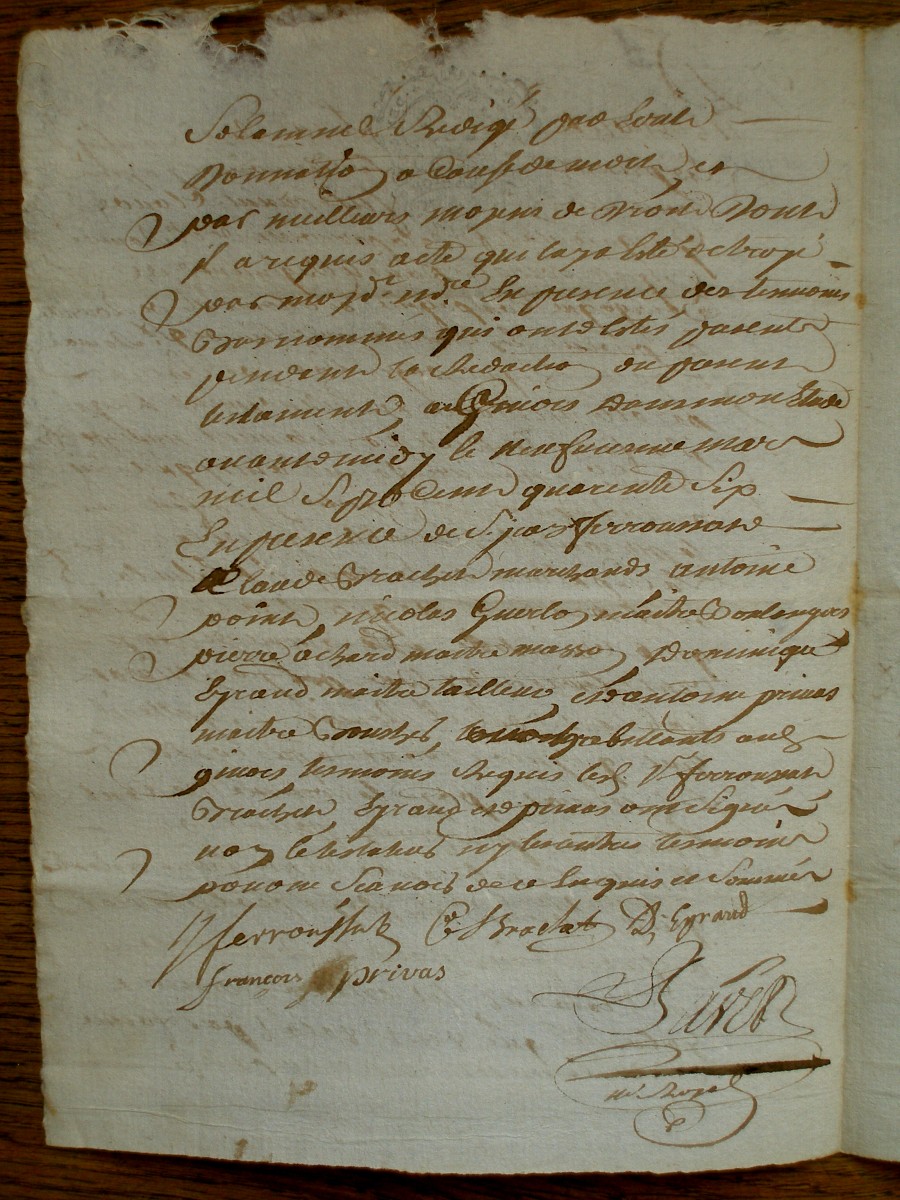 Solemnel Redigé par
Donnation a Cause de mort et
par meilleurs moyens de droit Dont
il a requis acte qui luy a esté octroyé
par moyd. nore En presence des temoins
Basnommés qui ont Estés presents
pendant la Redaction du present
testament, Dans mon Etude
avant midy le neufvieme mars
mil Sept Cent quarente Six
En presence de Sr ferroussat
Claude Brachet marchands antoine
point, nicolas maitre Boulanger
pierre achard maitre masson Dominique
Eyraud maitre tailleur et antoine privas
maitre habittants aud.
temoins Requis lesd. Sr ferroussat
Brachet Eyraud et privas ont Signé
non le testateur ny les autres temoins
pour ne Scavoir de ce Enquis et Sommés
ferroussat Ce Brachet D, Eyraud
françois privas
nre Royal